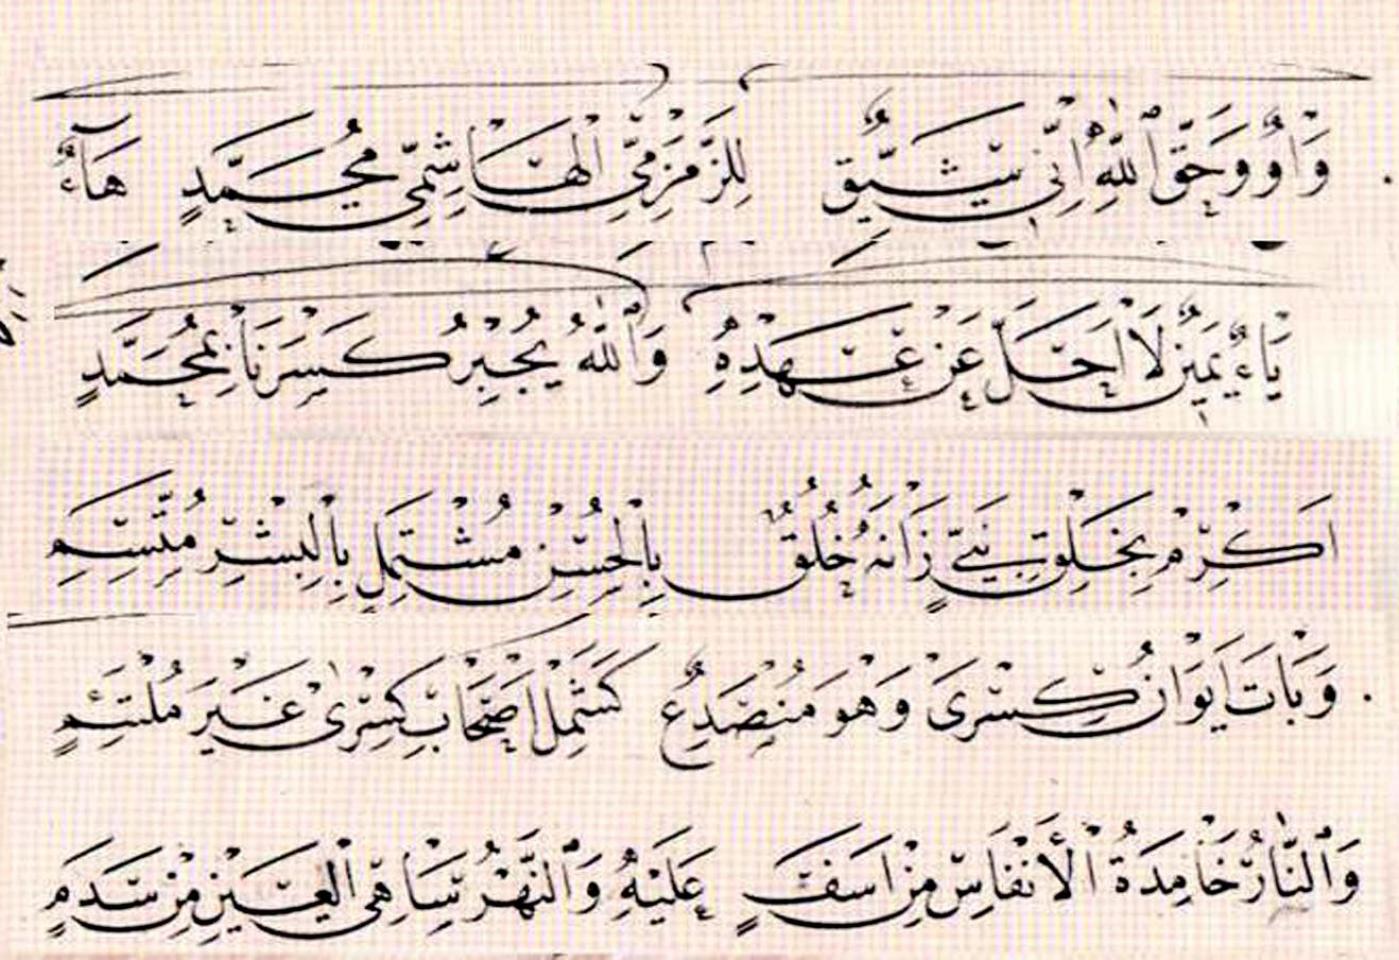 وَاوٌ وَحَقِّ ٱللّٰهِ اِنِّى شَيِّقٌ لِلزَّمْزَمِىِّ الْهَاشِمِىِّ مُحَمَّدٍ هَآءٌ
يَاءٌ يَمِينٌ لَا اَحُلْ عَنْ عَهْدِهِ وَٱللّٰهُ يُجْبِرُ كَسْرَنَا بِمُحَمَّدٍ
اَكْرِمْ بِخَلْقِ نَبِيٍّ زَانَهُ خُلُقٌ بِالْحُسْنِ مُشْتَمِلٍ بِالْبِشْرِ مُتَّسِمِ
وَبَاتَ اِيْوَانُ كِسْرَى وَهْوَ مُنْصَدِعٌ كَشَمْلِ اَصْحَابِ كِسْرٰى غَيْرَ مُلْتَئِمٍ
وَٱلنَّارُ خَامِدَةُ الْأَنْفَاسِ مِنْ اَسَفٍ عَلَيْهِ وَٱلنَّهْرُ سَاهِى الْعَيْنِ مِنْ سَدَمٍ